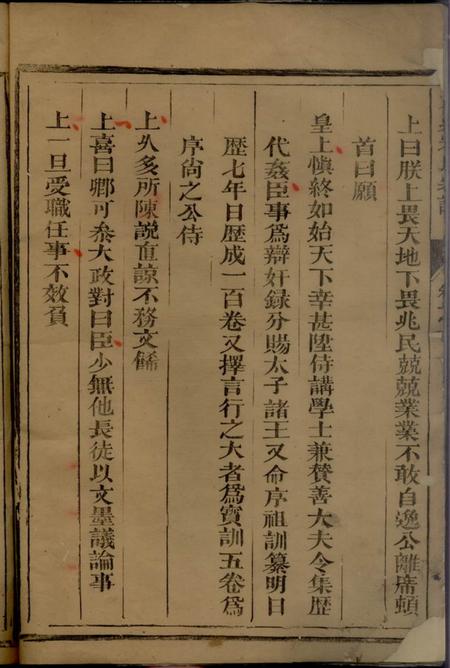 上曰朕上畏天地下畏兆民兢兢業業不敢自逸公離席頓
首曰願
皇上慎終如始天下幸甚陞侍講學士兼贊善大夫令集歷
代姦臣事爲辯奸録分賜太子諸王又命序祖訓纂明日
歷七年日歷成一百卷又擇言行之大者爲寳訓五卷爲
序尙之公侍
上久多所陳說直諒不務文餙
上喜曰卿可叅大政對曰臣少無他長徒以文墨議論事
上一旦受職任事不效負